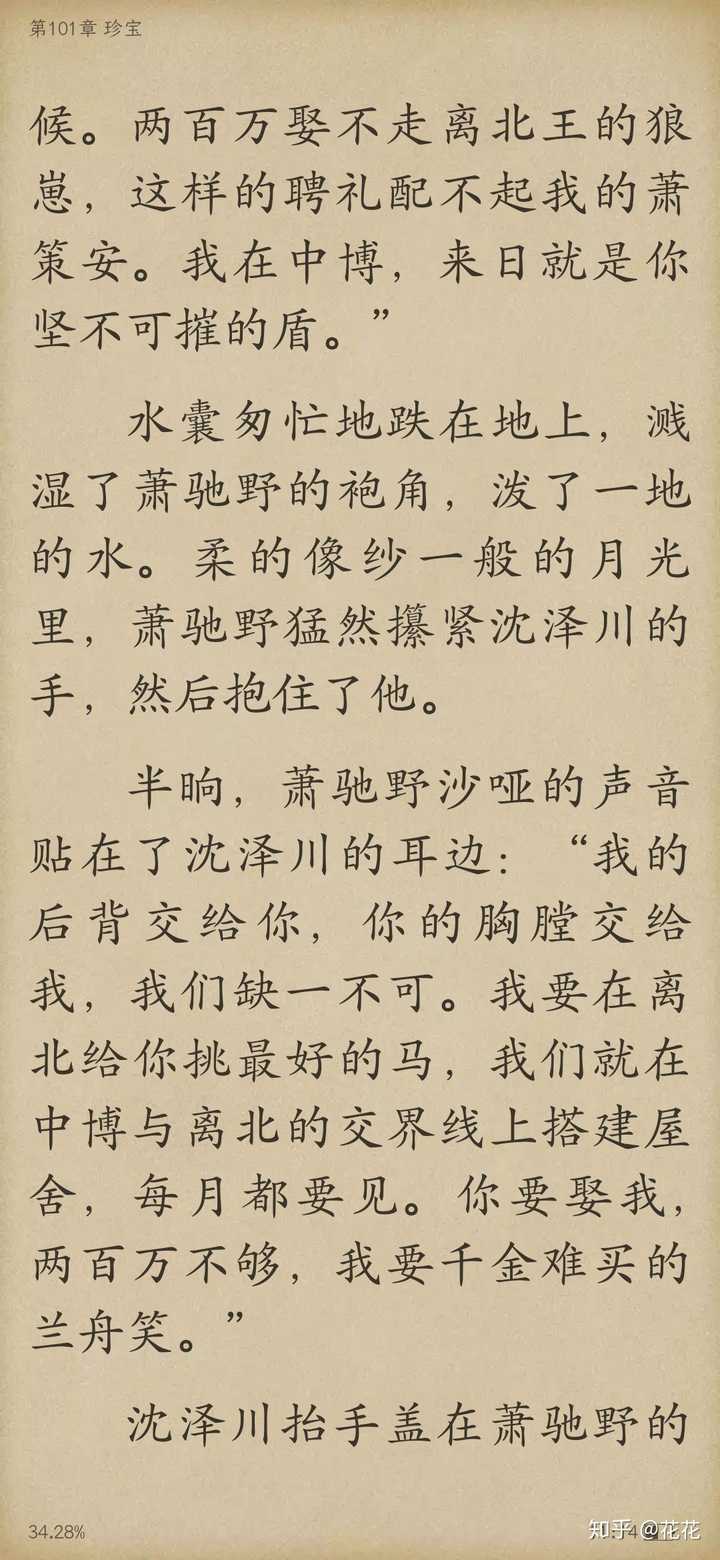 第101章 珍宝
候。两百万娶不走离北王的狼
崽，这样的聘礼配不起我的萧
策安。我在中博，来日就是你
坚不可摧的盾。”
水囊匆忙地跌在地上，溅
湿了萧驰野的袍角，泼了一地
的水。柔的像纱一般的月光
里，萧驰野猛然攥紧沈泽川的
手，然后抱住了他。
半晌，萧驰野沙哑的声音
贴在了沈泽川的耳边：“我的
后背交给你，你的胸膛交给
我，我们缺一不可。我要在离
北给你挑最好的马，我们就在
中博与离北的交界线上搭建屋
舍，每月都要见。你要娶我，
两百万不够，我要千金难买的
兰舟笑。”
沈泽川抬手盖在萧驰野的
34.28%
知乎 @花花